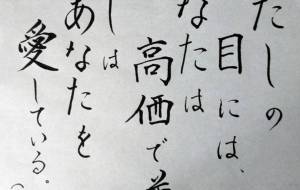 たしの
目には、
なたは
高価で
しは
あなたを
愛している。